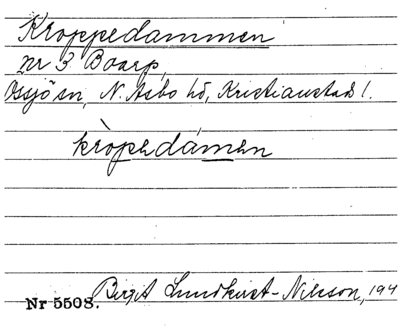 Kroppedammen
nr 3 Boarp,
Össjö sn, N. Åsbo hd, Kristianstads l.
kròpedámen
Birgit Lundkvist-Nilsson, 194
Nr 5508.